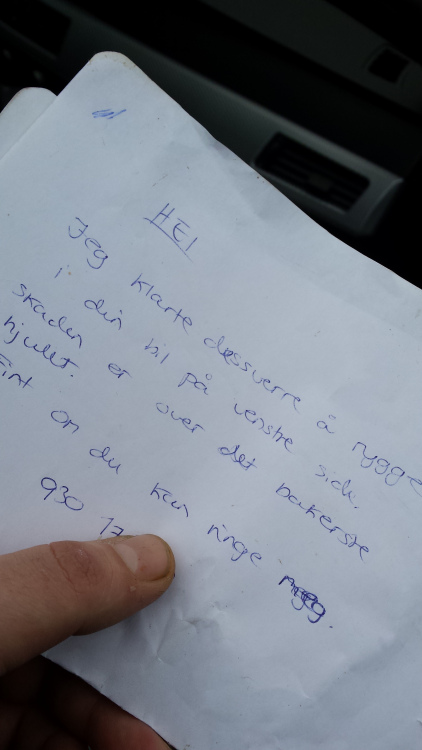 HEI
Jeg klarte dessverre å rygge
i din bil på venstre side.
skaden er over det bakerste
hjulet.
Fint om du kan ringe meg.
930 17